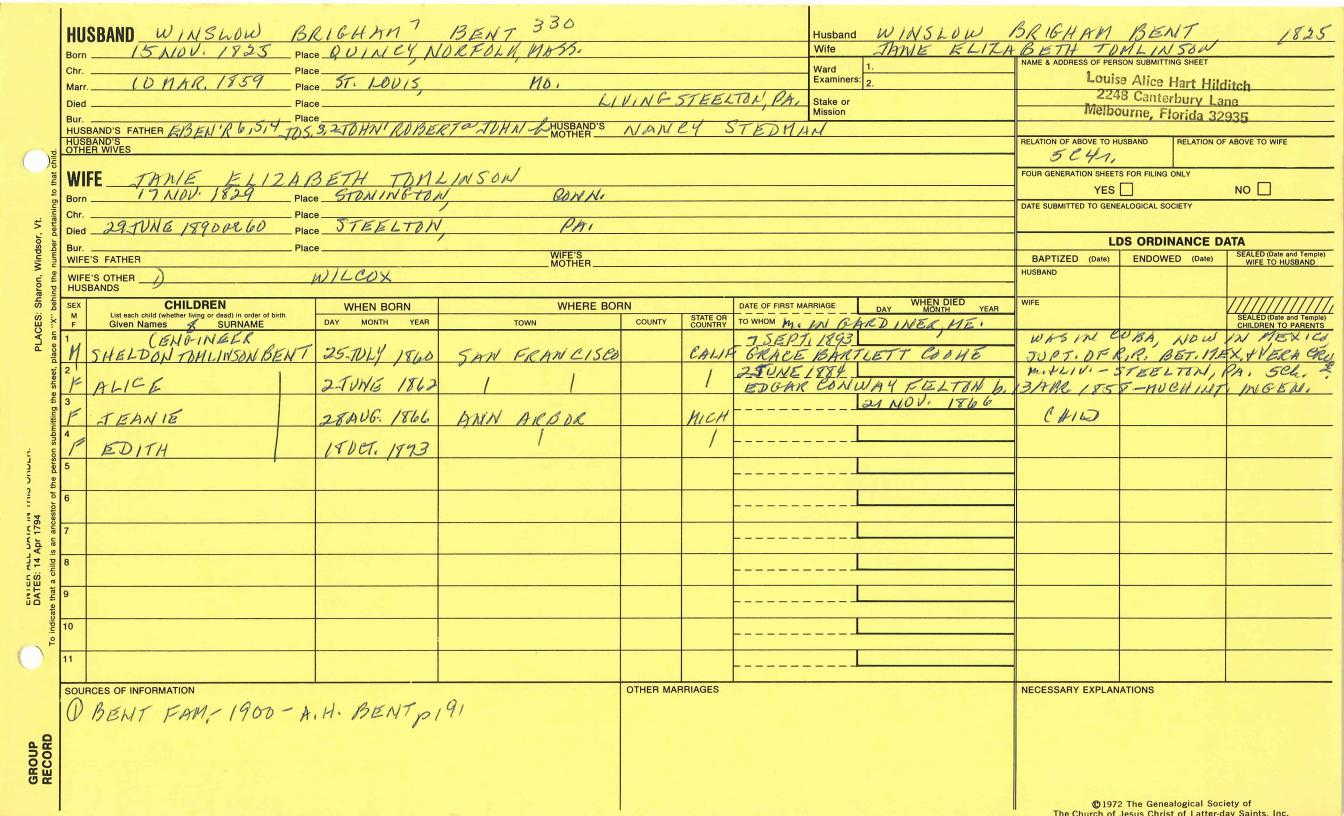 HUSBAND WINSLOW BRIGHAM 7 BENT 330
Born 15 NOV. 1825 Place QUINCY, NORFOLK, MASS.
Chr. Place
Marr. 10 MAR. 1859 Place ST. LOUIS, MO.
Died Place LIVING STEELTON, PA.
Bur. Place
HUSBAND'S FATHER EBEN'R 6,5,4 JOS. 3,2 JOHN' ROBERT JOHN HUSBAND'S MOTHER NANCY STEDMAN
HUSBAND'S OTHER WIVES
WIFE JANE ELIZABETH TOMLINSON
Born 17 NOV. 1829 Place STONINGTON, CONN.
Chr. Place
Died 29 JUNE 1890 OR 60 Place STEELTON, PA.
Bur. Place
WIFE'S FATHER WIFE'S MOTHER
WIFE'S OTHER HUSBANDS 1) WILCOX
Husband WINSLOW BRIGHAM BENT 1825
Wife JANE ELIZABETH TOMLINSON
Ward Examiners: 1.
2.
Stake or Mission
NAME & ADDRESS OF PERSON SUBMITTING SHEET
Louise Alice Hart Hilditch
2248 Canterbury Lane
Melbourne, Florida 32935
RELATION OF ABOVE TO HUSBAND RELATION OF ABOVE TO WIFE
5C4r.
FOUR GENERATION SHEETS FOR FILING ONLY
YES NO
DATE SUBMITTED TO GENEALOGICAL SOCIETY
LDS ORDINANCE DATA
BAPTIZED (Date) ENDOWED (Date) SEALED (Date and Temple) WIFE TO HUSBAND
HUSBAND
WIFE
SEALED (Date and Temple) CHILDREN TO PARENTS
SEX M F CHILDREN WHEN BORN WHERE BORN DATE OF FIRST MARRIAGE WHEN DIED
List each child (whether living or dead) in order of birth
Given Names SURNAME DAY MONTH YEAR TOWN COUNTY STATE OR COUNTRY TO WHOM DAY MONTH YEAR
m. IN GARDINER, ME.
1 (ENGINEER 7 SEPT. 1893 WAS IN CUBA, NOW IN MEXICO
M SHELDON TOMLINSON BENT 25 JULY 1860 SAN FRANCISCO CALIF GRACE BARTLETT COOHE SUPT. OF R.R. BET. MEX. & VERA CRU
2 2 JUNE 1884 m. & LIV. - STEELTON, PA. 5ch.
F ALICE 2 JUNE 1862 EDGAR CONWAY FELTON b. 13 APR 1858 - MUCH INT. IN GEN.
3 21 NOV. 1866
F JEANIE 28 AUG. 1866 ANN ARBOR MICH CHILD
4
F EDITH 1893
5
6
7
8
9
10
11
SOURCES OF INFORMATION OTHER MARRIAGES NECESSARY EXPLANATIONS
① BENT FAM,- 1900 - A.H. BENT p 191
©1972 The Genealogical Society of
The Church of Jesus Christ of Latter-day Saints, Inc.
PLACES: Sharon, Windsor, Vt.
ENTER ALL DATA IN THIS ORDER:
DATES: 14 Apr 1794
To indicate that a child is an ancestor of the person submitting the sheet, place an "X" behind the number pertaining to that child.
GROUP
RECORD